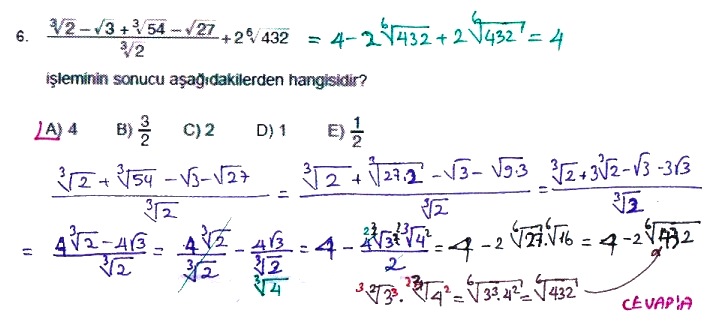 6. (∛2 − √3 + ∛54 − √27)/∛2 + 2⁶√432 = 4 − 2⁶√432 + 2⁶√432 = 4
işleminin sonucu aşağıdakilerden hangisidir?
A) 4 B) 3/2 C) 2 D) 1 E) 1/2
(∛2 + ∛54 − √3 − √27)/∛2 = (∛2 + ∛27·2 − √3 − √9·3)/∛2 = (∛2 + 3∛2 − √3 − 3√3)/∛2
= (4∛2 − 4√3)/∛2 = 4∛2/∛2 − 4√3/∛2 = 4 − 4 ²·³√3³ ²·³√4²/2 = 4 − 2 ⁶√27·⁶√16 = 4 − 2⁶√432
∛4
³·²√3³ · ²·³√4² = ⁶√3³·4² = ⁶√432
CEVAP:A